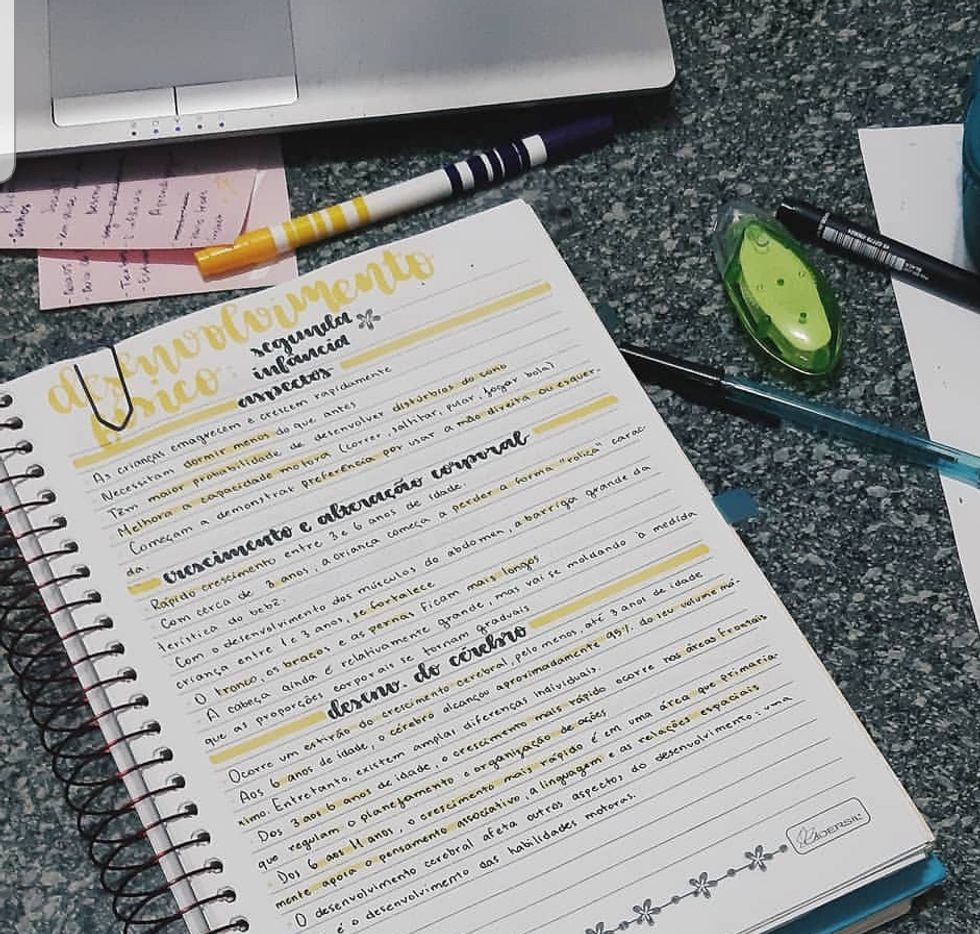 desenvolvimento
físico:
segunda
infância
aspectos
As crianças emagrecem e crescem rapidamente
Necessitam dormir menos do que antes
Têm maior probabilidade de desenvolver distúrbios do sono
Melhora a capacidade motora (correr, saltitar, pular, jogar bola)
Começam a demonstrar preferência por usar a mão direita ou esquer-
da.
crescimento e alteração corporal
Rápido crescimento entre 3 e 6 anos de idade.
Com cerca de 3 anos, a criança começa a perder a forma "roliça" carac-
terística do bebê.
Com o desenvolvimento dos músculos do abdomen, a barriga grande da
criança entre 1 e 3 anos, se fortalece
O tronco, os braços e as pernas ficam mais longos
A cabeça ainda é relativamente grande, mas vai se moldando à medida
que as proporções corporais se tornam graduais.
desenv. do cérebro
Ocorre um estirão do crescimento cerebral, pelo menos, até 3 anos de idade
Aos 6 anos de idade, o cérebro alcançou aproximadamente 95% do seu volume má-
ximo. Entretanto, existem amplas diferenças individuais.
Dos 3 aos 6 anos de idade, o crescimento mais rápido ocorre nas áreas frontais
que regulam o planejamento e organização de ações
Dos 6 aos 11 anos, o crescimento mais rápido é em uma área que primaria-
mente apoia o pensamento associativo, a linguagem e as relações espaciais
O desenvolvimento cerebral afeta outros aspectos do desenvolvimento: uma
é o desenvolvimento das habilidades motoras.